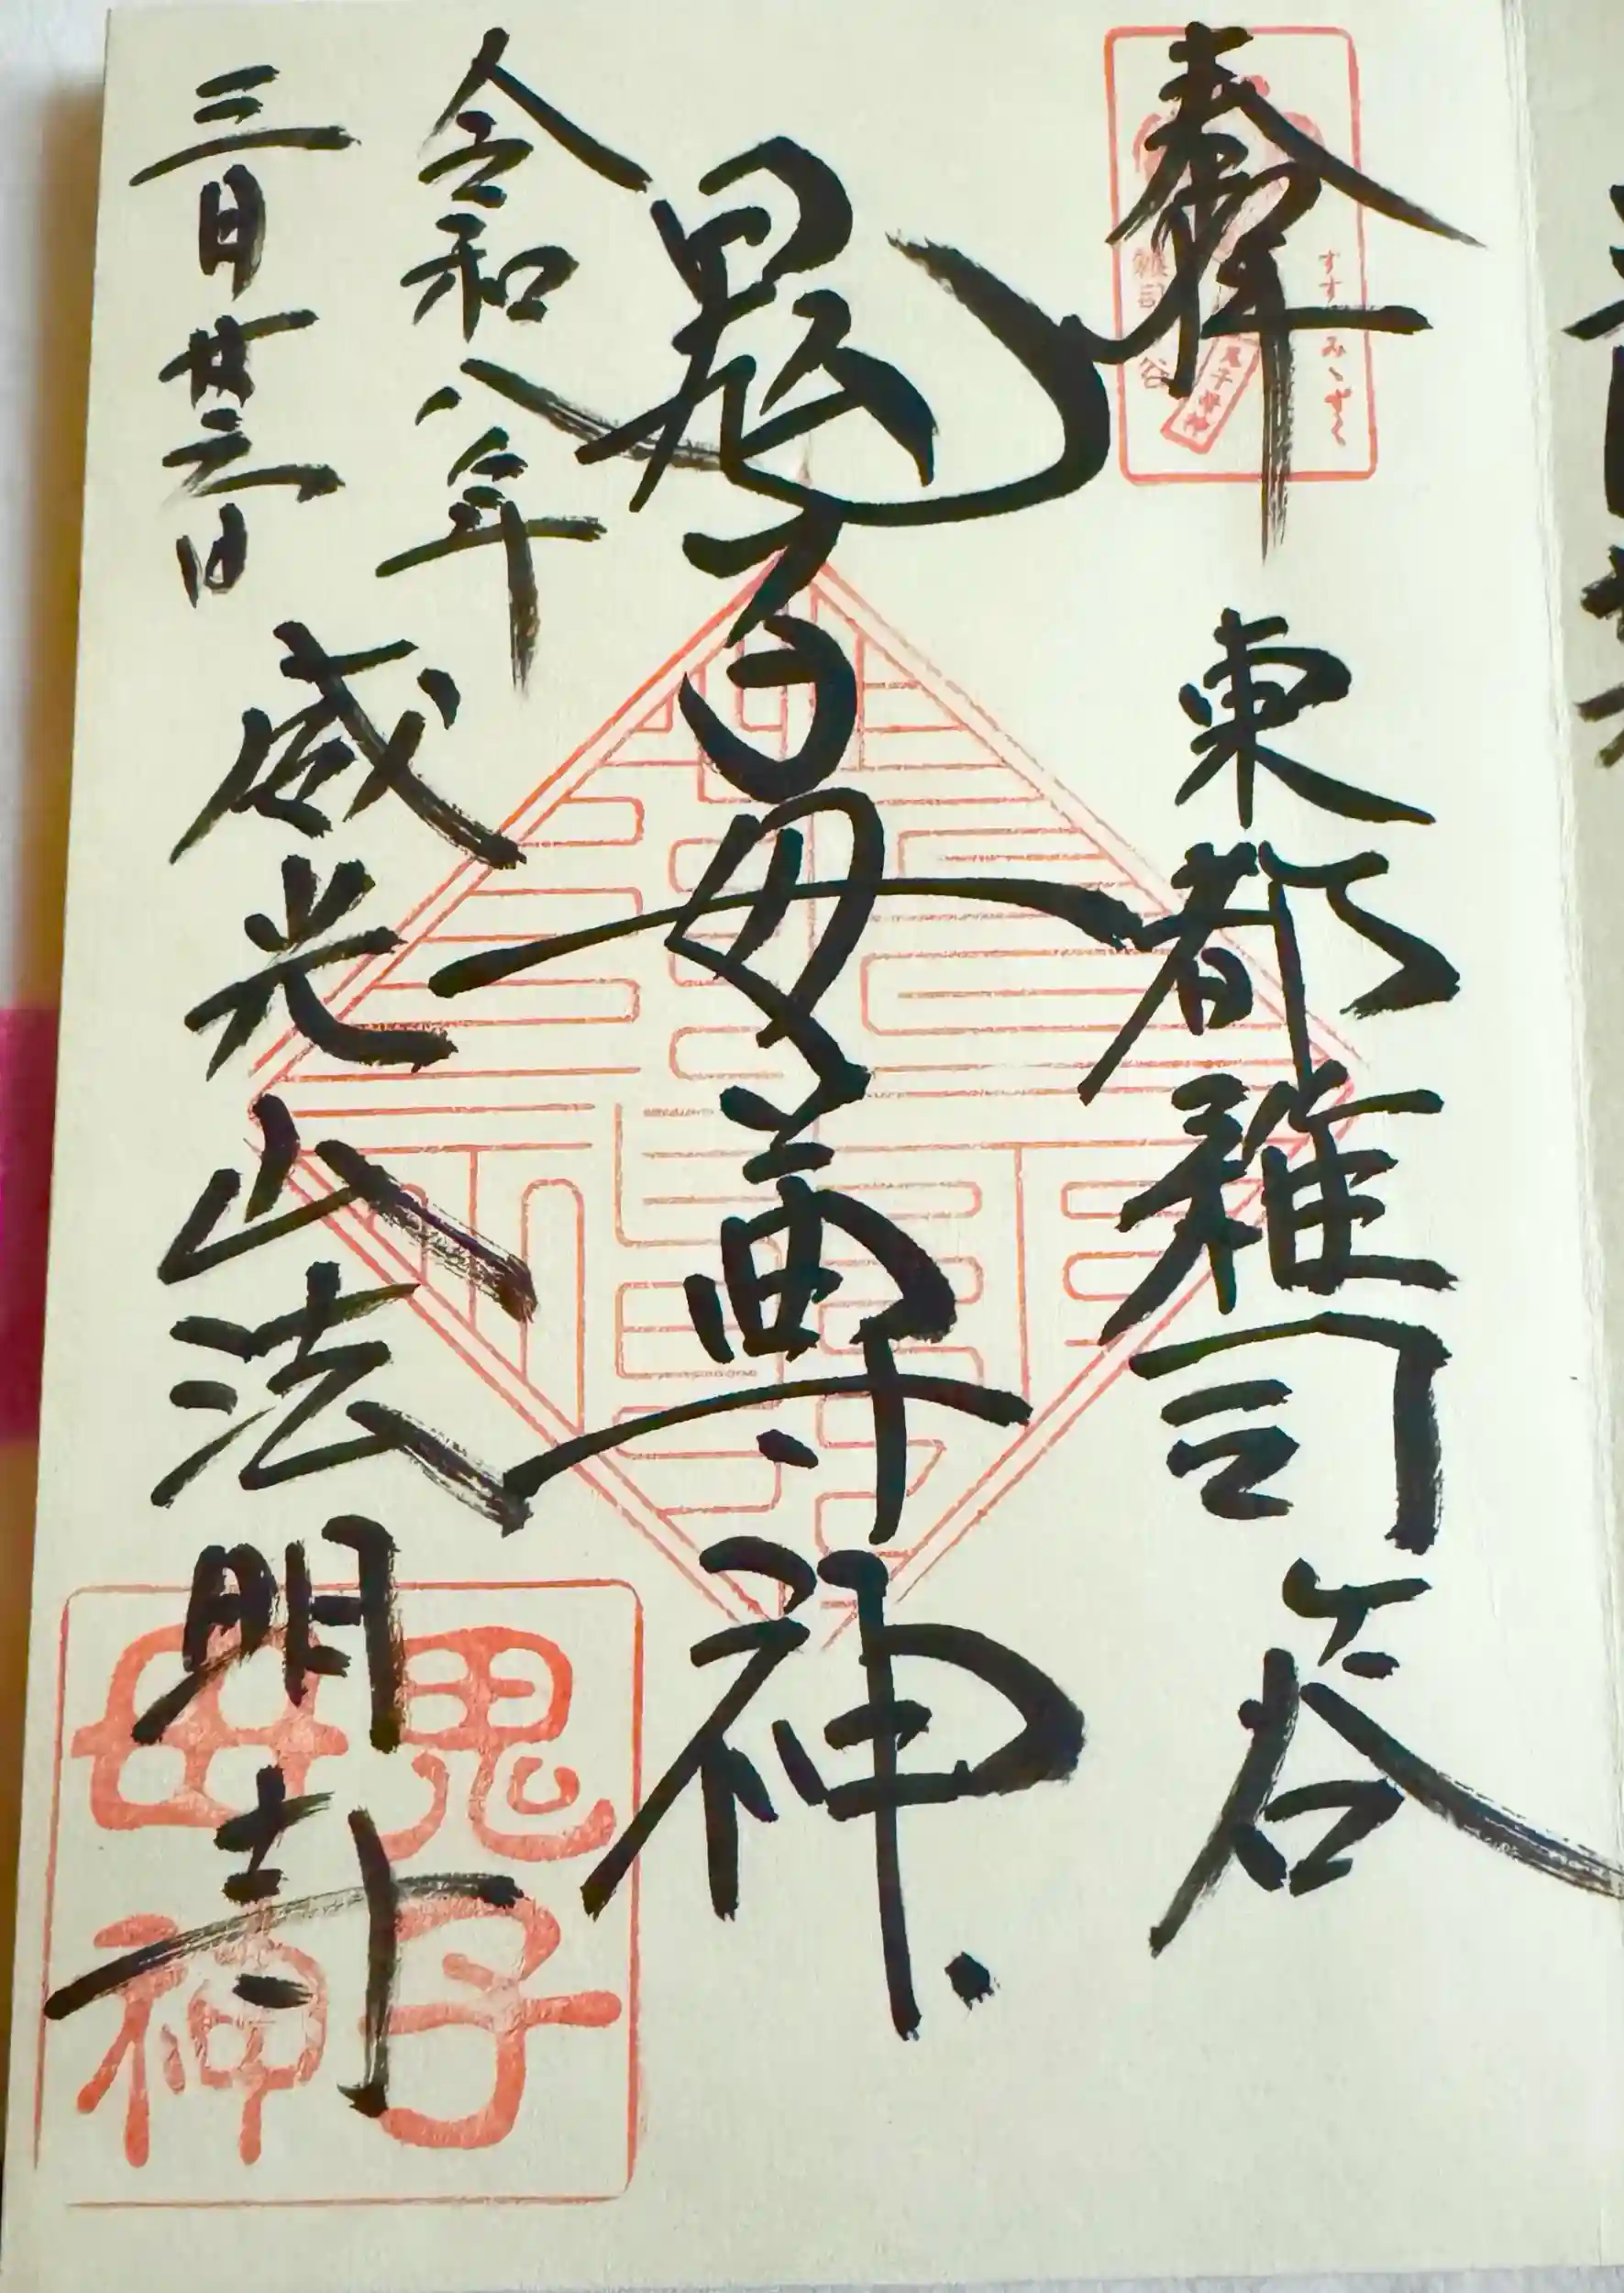 奉拝
東都雑司ケ谷
鬼子母尊神
令和八年
三月廿三日
威光山法明寺
すすきみゝずく
雑司谷
鬼子母神
鬼子
母神